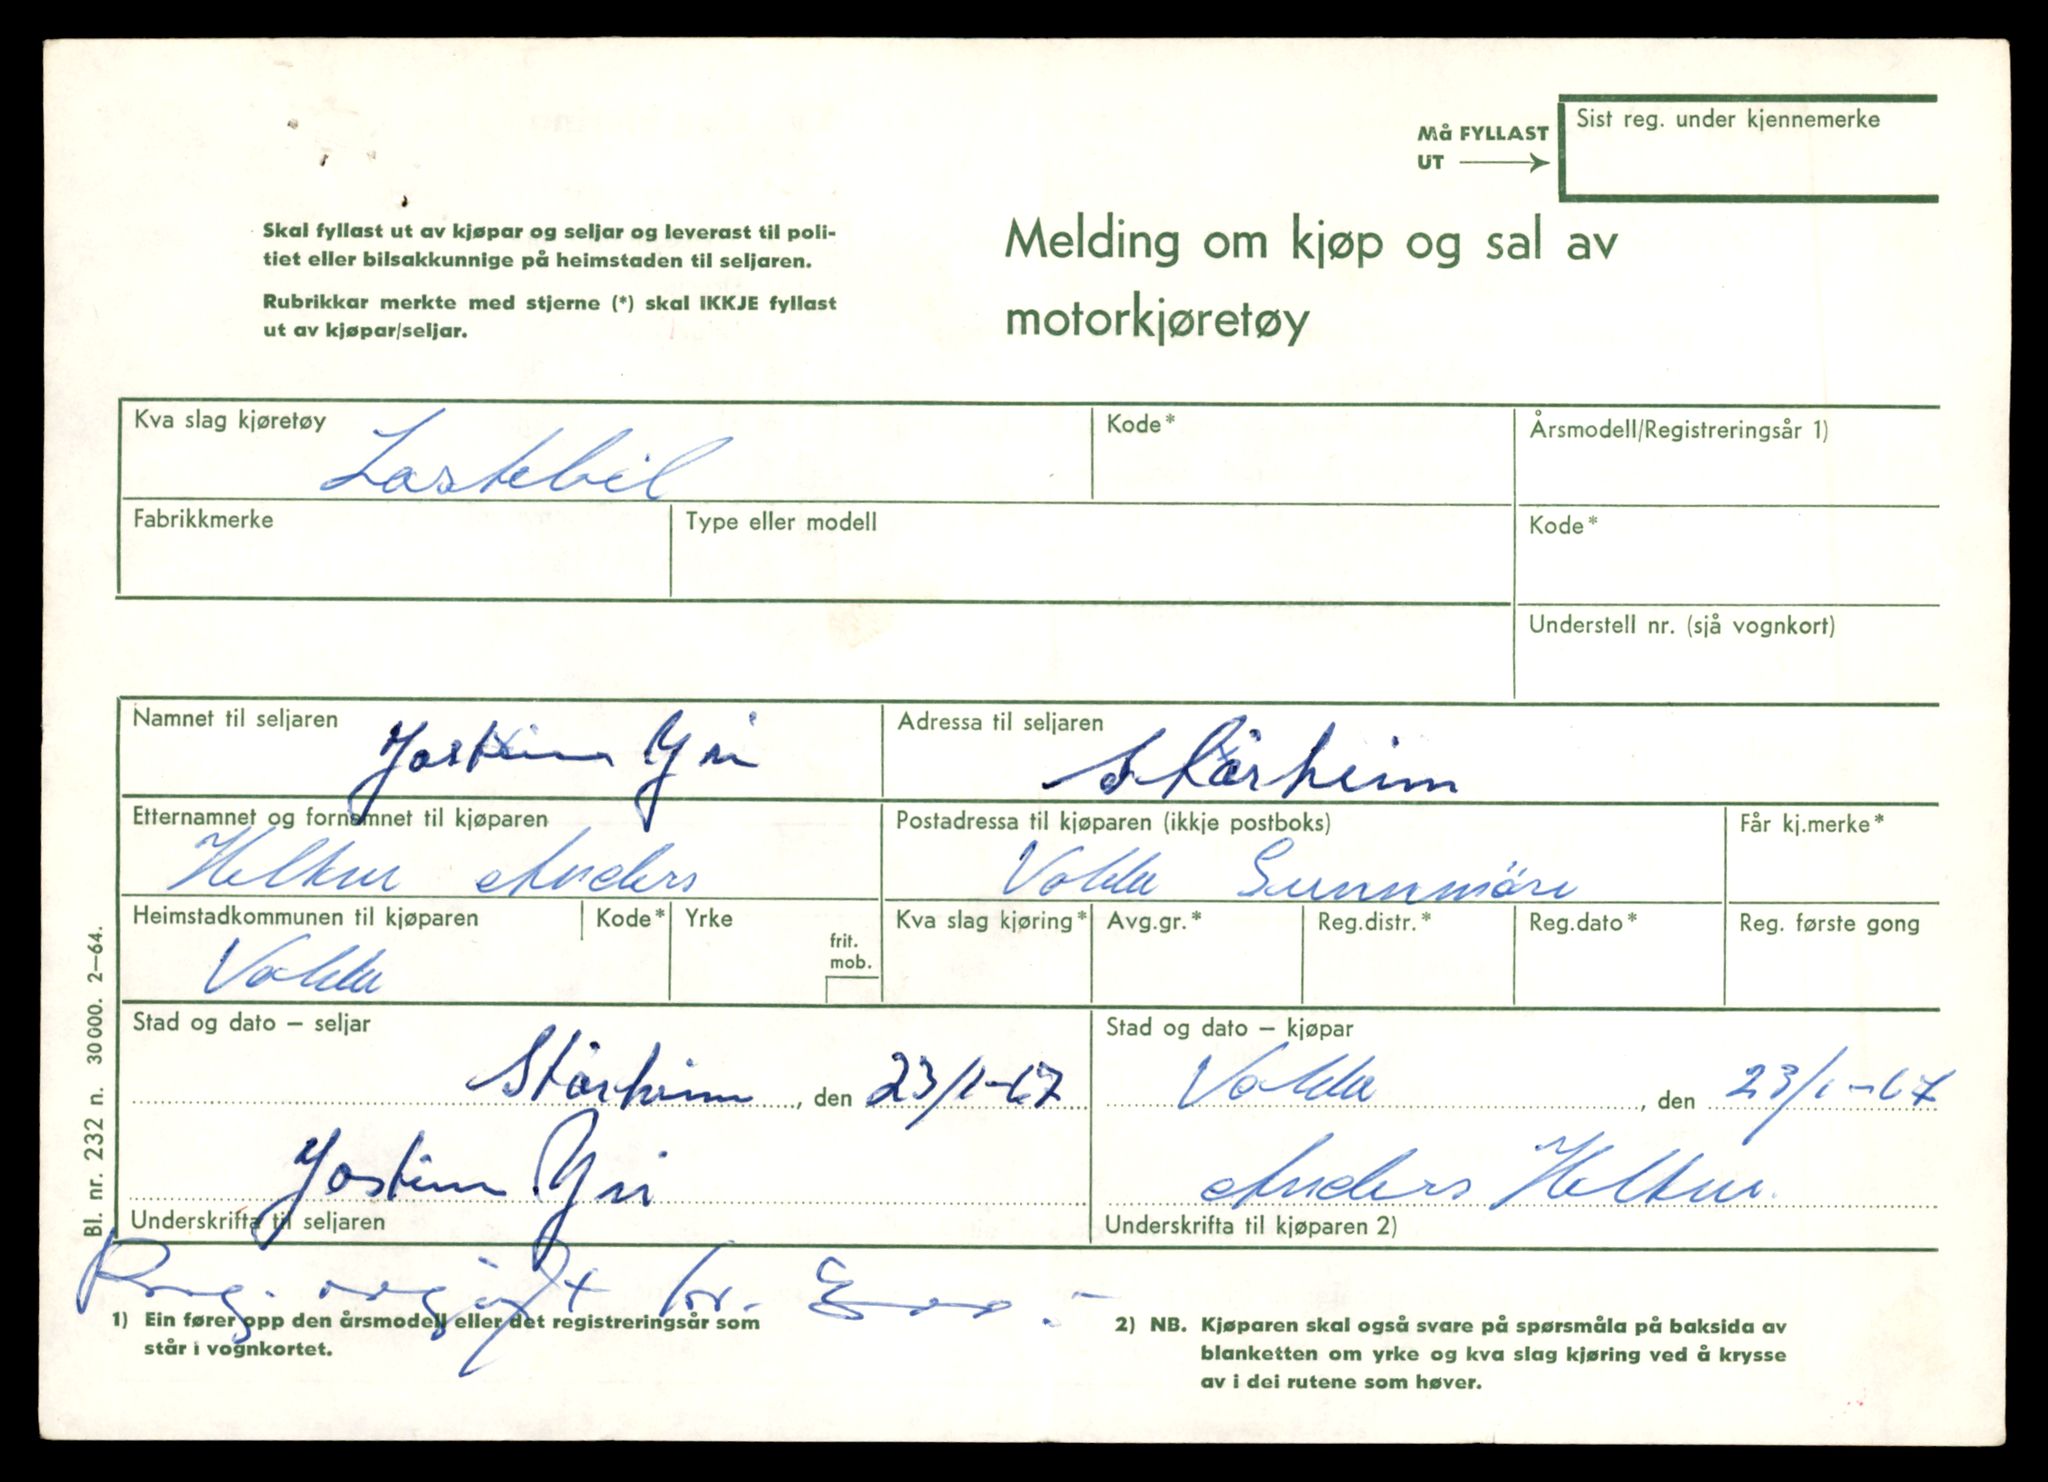 Må FYLLAST
UT
Sist reg. under kjennemerke
Skal fyllast ut av kjøpar og seljar og leverast til poli-
tiet eller bilsakkunnige på heimstaden til seljaren.
Rubrikkar merkte med stjerne (*) skal IKKJE fyllast
ut av kjøpar/seljar.
Melding om kjøp og sal av
motorkjøretøy
Kva slag kjøretøy
Lastebil
Kode*
Årsmodell/Registreringsår 1)
Fabrikkmerke
Type eller modell
Kode*
Understell nr. (sjå vognkort)
Namnet til seljaren
Jostein Yri
Adressa til seljaren
Stårheim
Etternamnet og fornamnet til kjøparen
Anders
Postadressa til kjøparen (ikkje postboks)
Volda Sunnmöre
Får kj.merke*
Heimstadkommunen til kjøparen
Volda
Kode*
Yrke
frit.
mob.
Kva slag kjøring*
Avg.gr.*
Reg.distr.*
Reg.dato*
Reg. første gong
Stad og dato – seljar
Stårheim, den 23/1-67
Jostein Yri
Underskrifta til seljaren
Stad og dato – kjøpar
Volda, den 23/1-67
Anders
Underskrifta til kjøparen 2)
Bl. nr. 232 n. 30 000. 2–64.
1) Ein fører opp den årsmodell eller det registreringsår som
står i vognkortet.
2) NB. Kjøparen skal også svare på spørsmåla på baksida av
blanketten om yrke og kva slag kjøring ved å krysse
av i dei rutene som høver.